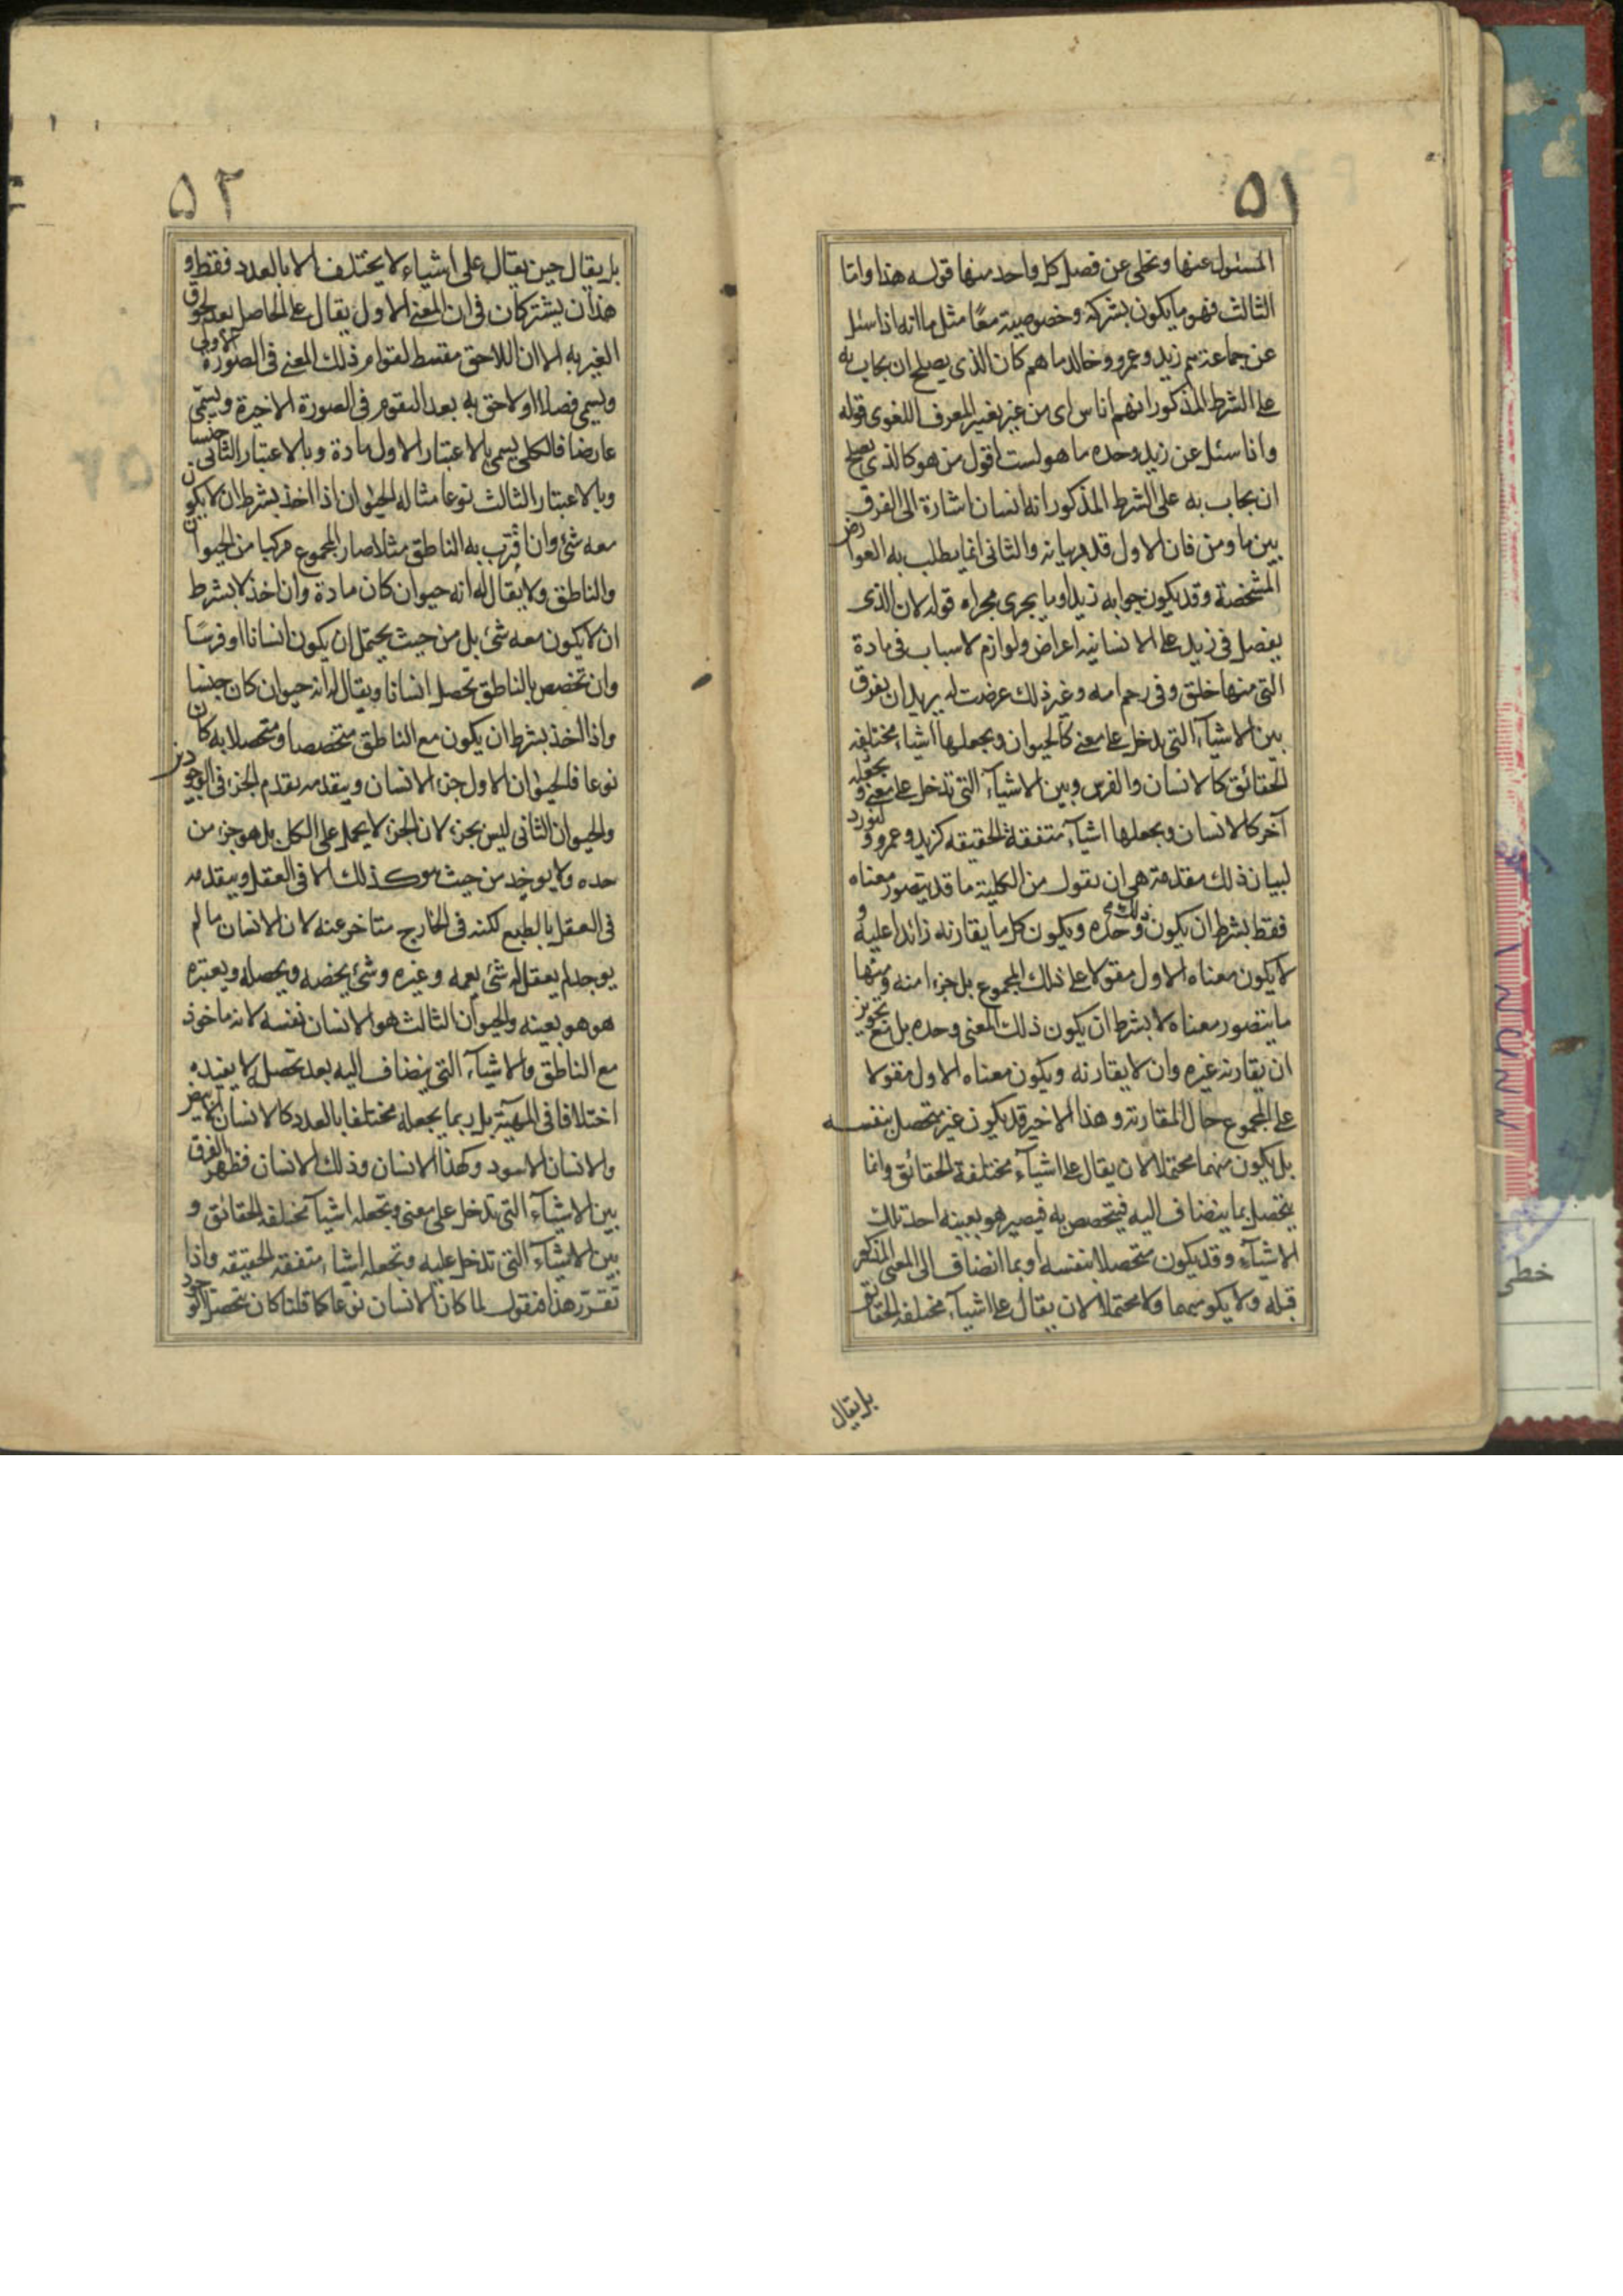 ٥١
المسئول عنها وتخلى عن فصل كل واحد منها قوله هذا واما
الثالث فهو ما يكون بشركة وخصوصية معًا مثل ما انه اذا سئل
عن جماعة هم زيد وعمرو وخالد ما هم كان الذى يصلح ان يجاب به
على الشرط المذكور انهم اناس اى من غير تغيير المعرف اللغوى قوله
واذا سئل عن زيد وحده ما هو لست اقول من هو كان الذى يصلح
ان يجاب به على الشرط المذكور انه انسان اشارة الى الفرق
بين ما ومن فان الاول قد مر بيانه والثانى انما يطلب به العوارض
المشخصة وقد يكون جوابه زيد او ما يجرى مجراه قوله لان الذى
يفصل فى زيد على الانسانية اعراض ولوازم لاسباب فى مادة
التى منها خلق وفى رحم امه وغير ذلك عرضت له يريد ان يفرق
بين الاشياء التى تدخل على معنى كالحيوان ويجعلها اشياء مختلفه
الحقائق كالانسان والفرس وبين الاشياء التى تدخل على معنى
آخر كالانسان ويجعلها اشياء متفقة الحقيقه كزيد وعمرو ولنورد
لبيان ذلك مقدمة هى ان نقول من الكلية ما قد يتصور معناه
فقط بشرط ان يكون ذلك وحده ويكون كل ما يقارنه زائدا عليه و
لا يكون معناه الاول مقولا على ذلك المجموع بل جزءا منه ومنها
ما يتصور معناه لا بشرط ان يكون ذلك المعنى وحده بل مع تجويز
ان يقارنه غيره وان لا يقارنه ويكون معناه الاول مقولا
على المجموع حال المقارنة وهذا الاخير قد يكون غير متحصل بنفسه
بل يكون مبهما محتملا لان يقال على اشياء مختلفة الحقائق وانما
يتحصل بما ينضاف اليه فيتخصص به فيصير هو بعينه احد تلك
الاشياء وقد يكون متحصلا بنفسه او بما انضاف الى المعنى المذكور
قبله ولا يكون مبهما ولا محتملا لان يقال على اشياء مختلفه الحقائق
بل يقال
٥٢
بل يقال حين يقال على اشياء لا يختلف الا بالعدد فقط و
هذان يشتركان فى ان المعنى الاول يقال على الحاصل بعد لحوق
الغير به الا ان اللاحق مقسط لقوام ذلك المعنى فى الصورة الاولى
ويسمى فصلا او لاحق به بعد التقوم فى الصورة الاخيرة ويسمى
عارضا فالكلى يسمى بالاعتبار الاول مادة وبالاعتبار الثانى جنسا
وبالاعتبار الثالث نوعا مثاله الحيوان اذا اخذ بشرط ان لا يكون
معه شئ وان اقترن به الناطق مثلا صار المجموع مركبا من الحيوان
والناطق ولا يقال له انه حيوان كان مادة وان اخذ لا بشرط
ان لا يكون معه شئ بل من حيث يحتمل ان يكون انسانا او فرسًا
وان تخصص بالناطق تحصل انسانا ويقال له انه حيوان كان جنسا
واذا اخذ بشرط ان يكون مع الناطق متخصصا ومتحصلا به كان
نوعا فالحيوان الاول جزء الانسان ويتقدمه تقدم الجزء فى الوجود
والحيوان الثانى ليس بجزء لان الجزء لا يحمل على الكل بل هو جزء من
حده ولا يوجد من حيث هو كذلك الا فى العقل ويتقدمه
فى العقل بالطبع لكنه فى الخارج متاخر عنه لان الانسان ما لم
يوجد لم يعقل له شئ يعمه وغيره وشئ يخصه ويحصله ويعتبره
هو هو بعينه والحيوان الثالث هو الانسان نفسه لانه ماخوذ
مع الناطق والاشياء التى ينضاف اليه بعد تحصله لا يفيده
اختلافا فى المهية بل ربما يجعله مختلفا بالعدد كالانسان الابيض
والانسان الاسود وكهذا الانسان وذلك الانسان فظهر الفرق
بين الاشياء التى تدخل على معنى وتجعله اشياء مختلفه الحقائق و
بين الاشياء التى تدخل عليه وتجعله اشياء متفقه الحقيقه واذا
تقرر هذا فنقول لما كان الانسان نوعا كما قلنا كان متحصل الوجود
خطى